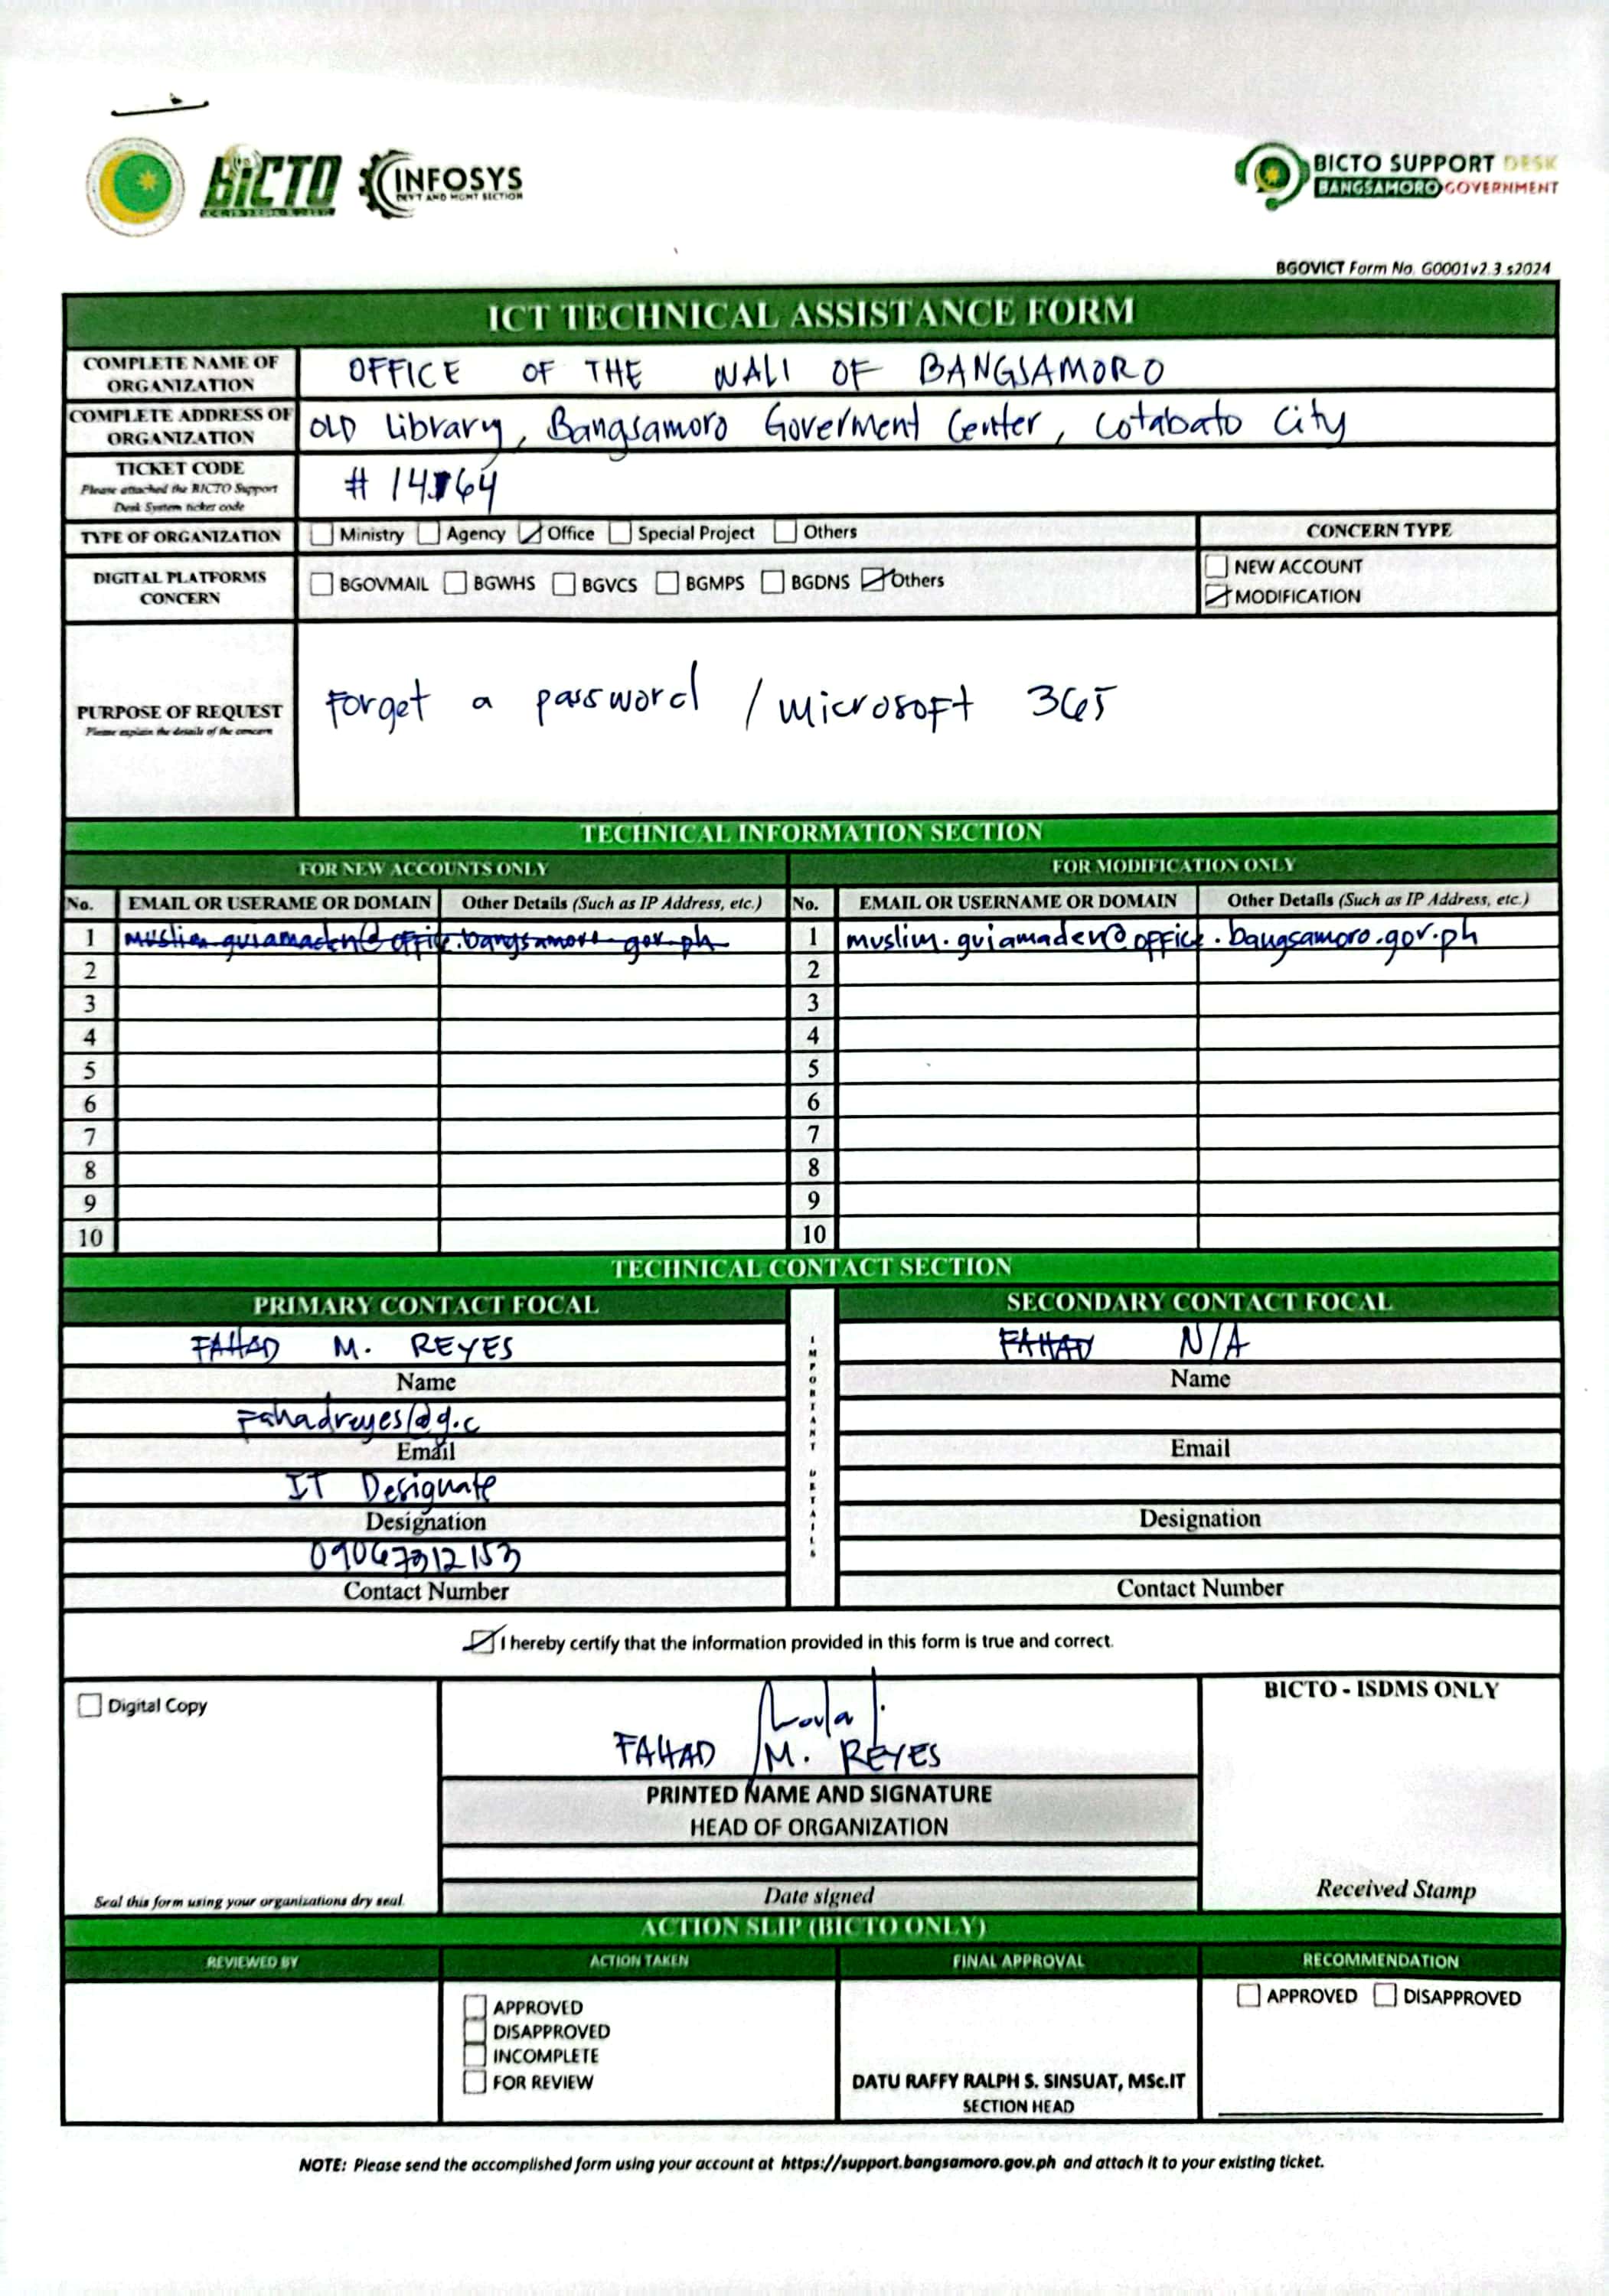 BICTO
INFOSYS
DEV'T AND MGMT SECTION
BICTO SUPPORT DESK
BANGSAMORO GOVERNMENT
BGOVICT Form No. G0001v2.3.s2024
ICT TECHNICAL ASSISTANCE FORM
COMPLETE NAME OF ORGANIZATION
OFFICE OF THE WALI OF BANGSAMORO
COMPLETE ADDRESS OF ORGANIZATION
OLD Library, Bangsamoro Goverment Center, Cotabato City
TICKET CODE
Please attached the BICTO Support
Desk System ticker code
# 14164
TYPE OF ORGANIZATION
Ministry Agency Office Special Project Others
CONCERN TYPE
DIGITAL PLATFORMS CONCERN
BGOVMAIL BGWHS BGVCS BGMPS BGDNS Others
NEW ACCOUNT
MODIFICATION
PURPOSE OF REQUEST
Please explain the details of the concern
Forget a password / microsoft 365
TECHNICAL INFORMATION SECTION
FOR NEW ACCOUNTS ONLY FOR MODIFICATION ONLY
No. EMAIL OR USERAME OR DOMAIN Other Details (Such as IP Address, etc.) No. EMAIL OR USERNAME OR DOMAIN Other Details (Such as IP Address, etc.)
1 1 muslim.guiamaden@office.bangsamoro.gov.ph
2 2
3 3
4 4
5 5
6 6
7 7
8 8
9 9
10 10
TECHNICAL CONTACT SECTION
PRIMARY CONTACT FOCAL
SECONDARY CONTACT FOCAL
IMPORTANT DETAILS
FAHAD M. REYES
FAHAD N/A
Name Name
Fahadreyes@g.c
Email Email
IT Designate
Designation Designation
09067312153
Contact Number Contact Number
I hereby certify that the information provided in this form is true and correct.
Digital Copy
Seal this form using your organizations dry seal.
FAHAD M. REYES
PRINTED NAME AND SIGNATURE
HEAD OF ORGANIZATION
Date signed
BICTO - ISDMS ONLY
Received Stamp
ACTION SLIP (BICTO ONLY)
REVIEWED BY ACTION TAKEN FINAL APPROVAL RECOMMENDATION
APPROVED
DISAPPROVED
INCOMPLETE
FOR REVIEW
DATU RAFFY RALPH S. SINSUAT, MSc.IT
SECTION HEAD
APPROVED DISAPPROVED
NOTE: Please send the accomplished form using your account at https://support.bangsamoro.gov.ph and attach it to your existing ticket.